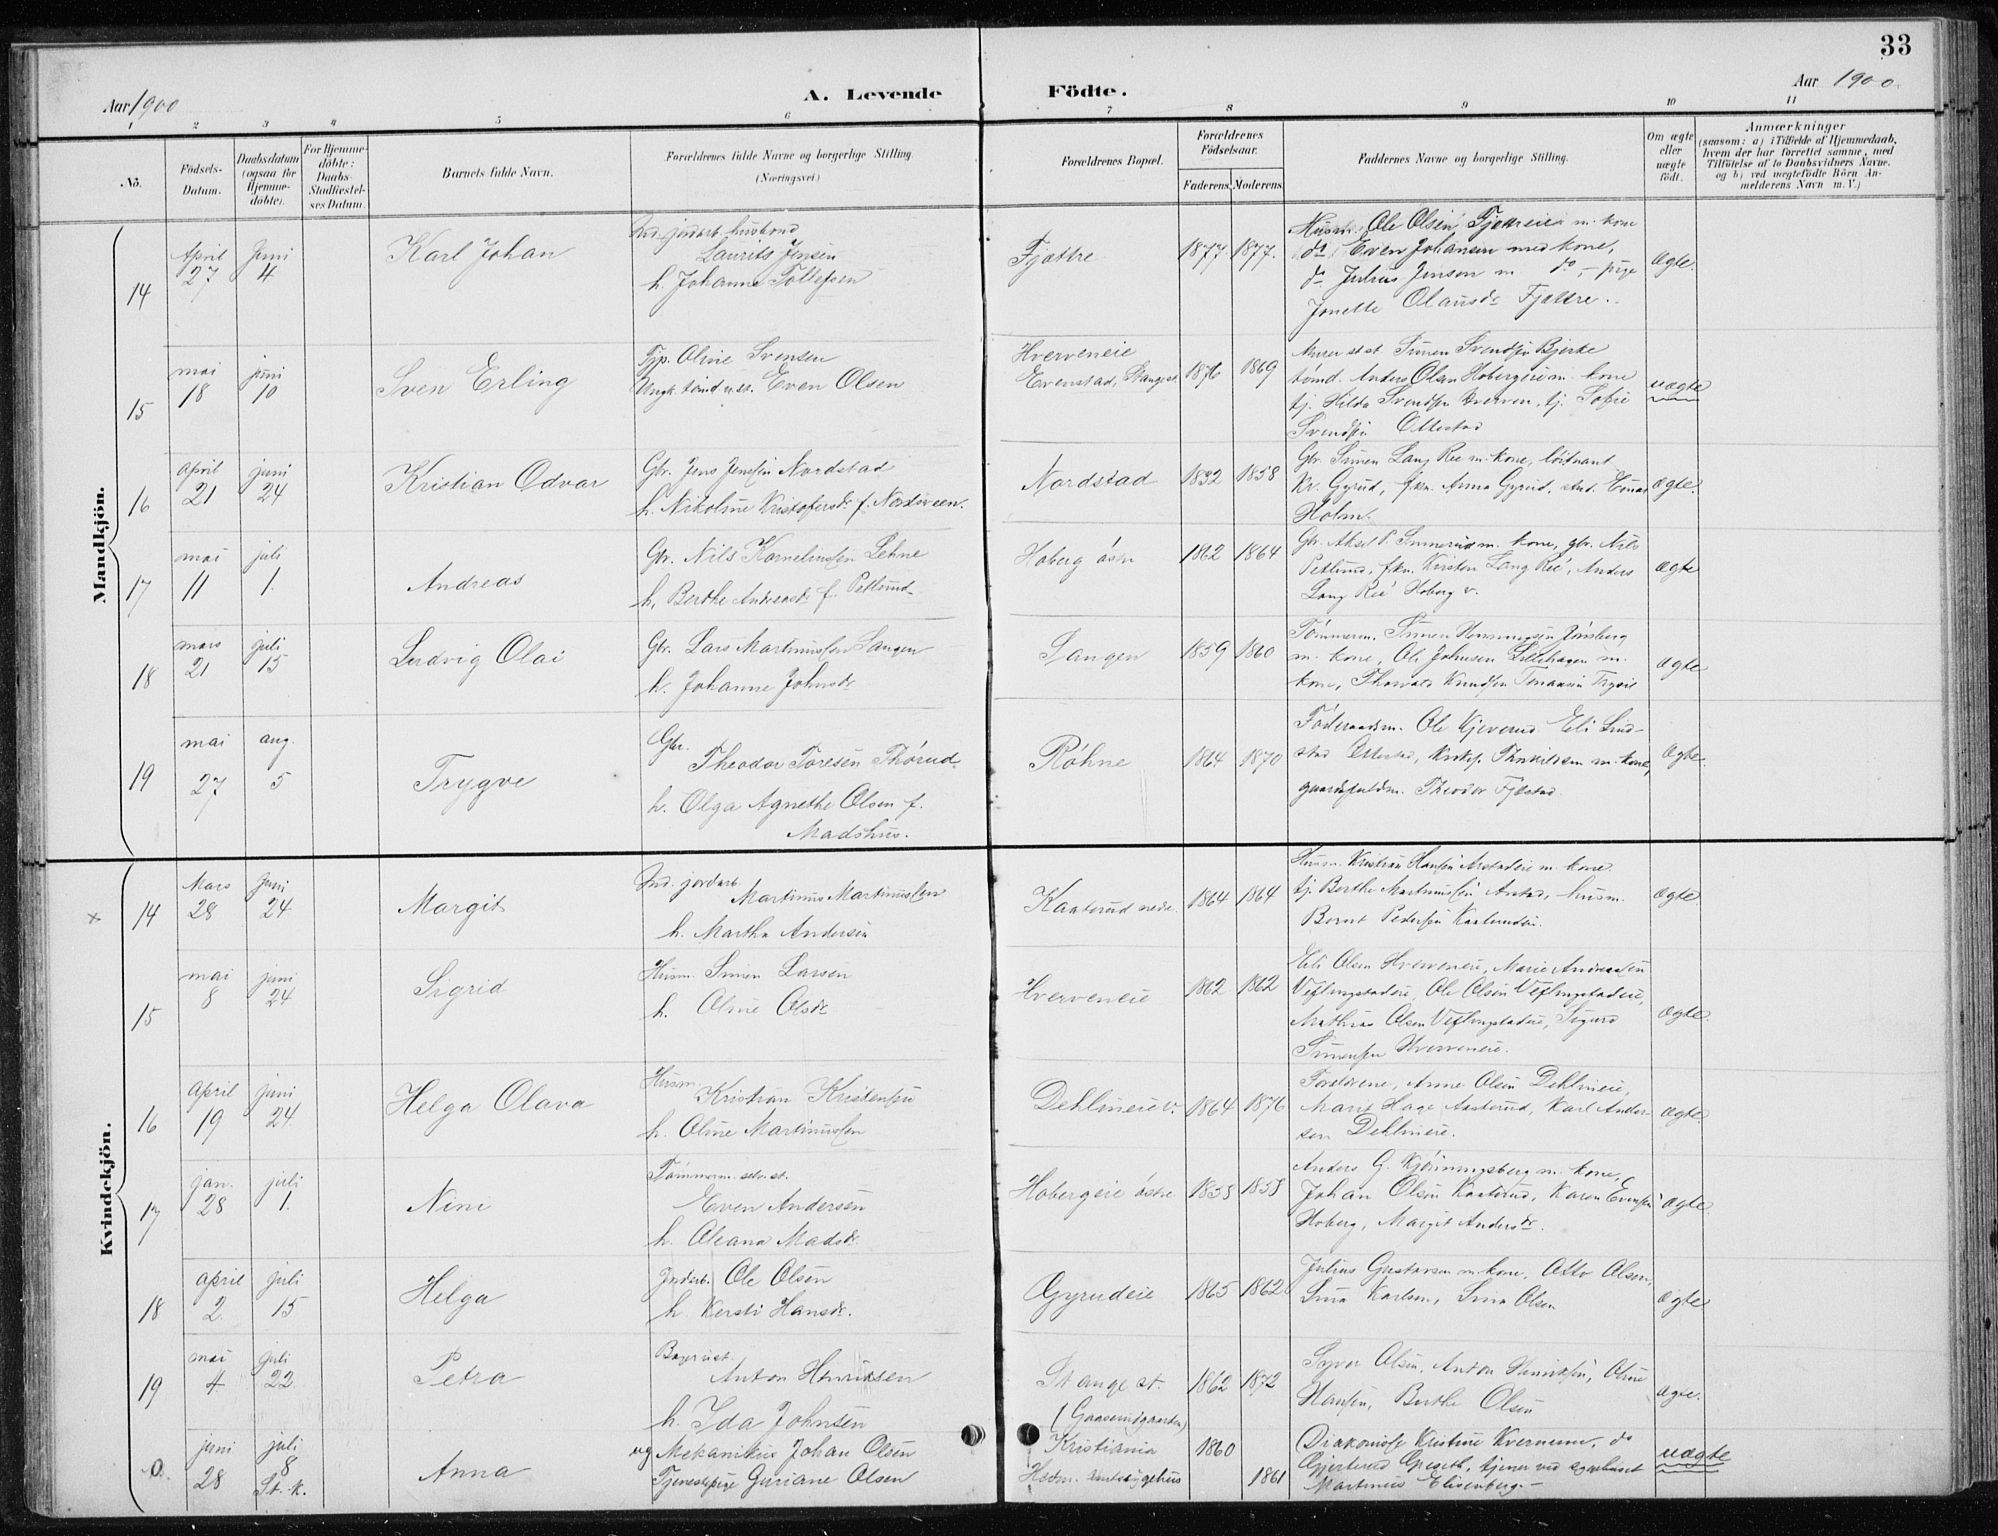 33
Aar 1900
A. Levende
Födte.
Aar 1900
1 2 3 4 5 6 7 8 9 10 11
No.
Födsels-
Datum.
Daabsdatum
(ogsaa for
Hjemme-
döbte).
For Hjemme-
döbte:
Daabs-
Stadfæstel-
ses Datum.
Barnets fulde Navn.
Forældrenes fulde Navne og borgerlige Stilling.
(Næringsvei.)
Forældrenes Bopæl.
Forældrenes
Födselsaar.
Faderens. Moderens.
Faddernes Navne og borgerlige Stilling.
Om ægte
eller
uægte
födt.
Anmærkninger
(saasom: a) i Tilfælde af Hjemmedaab,
hvem der har forrettet samme, med
Tilföielse af to Daabsvidners Navne.
og b) ved uægtefödte Börn An-
melderens Navn m. V.)
Mandkjön.
14
April 27
Juni 4
Karl Johan
Ind. jordarb. husbond
Laurits Jensen
h. Johanne Tollefsen
Fjættre
1877 1877.
Husm. Ole Olsen Fjættreie m. kone
do Even Johansen med kone,
do Julius Jensen m do, pige
Jonette Olausdr Fjættre.
Ægte.
15
mai 18
juni 10
Sven Erling
Tjp. Oline Svensen
Ungk. Even Olsen
Hverveneie
Evenstad, Stange st.
1876 1869
Murer Simen Svendsen Bjerke
tömd. Anders Olsen Hobergeie m. kone
tj. Hilda Svendsen Hverven, tj. Sofie
Svendsen Ottestad
uægte
16
april 21
juni 24
Kristian Odvar
Gbr. Jens Jensen Nordstad
h. Nikoline Kristofersdr f. Nordsveen.
Nordstad
1832 1858
Gbr. Simen Lang Ree m. kone, löitnant
Kr. Gyrud, frkn. Anna Gyrud, stud. Einar
Holm.
Ægte.
17
mai 11
juli 1.
Andreas
Gbr. Nils Korneliussen Lehne
h. Berthe Andreasdr f. Petlund
Hoberg östre
1862 1864
Gbr. Aksel P. m. kone, gbr. Nils
Petlund, frkn. Kirsten Lang Ree, Anders
Lang Ree Hoberg v.
Ægte
18
mars 21
juli 15
Ludvig Olai
Gbr. Lars Martinussen Sangen
h. Johanne Johnsdr
Sangen
1859 1860
Tömmerm. Simen Hemmingsen Jönsberg
m. kone, Ole Johnsen Lillehagen m.
kone, Thorvald Knudsen Trysil
Ægte
19
mai 27
aug. 5
Trygve
Gbr.
Theodor Toresen Thörud
h. Olga Agnethe Olsen f.
Madshus.
Röhne
1864 1870
Föderaadsm. Ole Kjeverud Eli Lind-
stad Ottestad, Thorvildsen m. kone,
gaardsfuldm. Theodor Fjelstad.
Ægte.
Kvindekjön.
x
14
Mars 28
Juni 24
Margit
Ind. jordarb.
Martinus Martinussen
h. Martha Andersen
Kaaterud nedr.
1864 1864
Husm. Kristian Hansen Arstadeie m. kone
tj. Berthe Martinussen Arstad, husm.
Bernt Pedersen Kaaterudeie.
Ægte
15
mai 8
juni 24
Sigrid
Husm. Simen Larsen
h. Oline Olsdr
Hverveneie
1862 1862
Eli Olsen Hverveneie, Marie Andreassen
Veflingstadeie, Ole Olsen Veflingstadeie,
Mathias Olsen Veflingstadeie, Sigurd
Simensen Hverveneie.
Ægte.
16
april 19
juni 24
Helga Olava
Husm.
Kristian Kristensen
h. Oline Martinussen
Dehlineie v.
1864 1876
Forældrene, Anne Olsen Dehlineie,
Marie Hage Aasterud, Karl Ander-
sen Dehlineie.
Ægte.
17
jan. 28
juli 1.
Nini
Tömmerm. selv.st.
Even Andersen
h. Oleana Madsdr.
Hobergeie östre
1858 1858
Anders G. Kjönningsberg m. kone,
Johan Olsen Kaaterud, Karen Evensen
Hoberg, Margit Andersdr.
Ægte.
18
april 2
juli 15
Helga
Jordarb. Ole Olsen
h. Kersti Hansdr.
Gyrudeie
1865 1862
Julius Gustavsen m. kone, Otto Olsen,
Lina Karlsen, Lina Olsen
Ægte
19
mai 4
Juli 22
Petra
Anton Henriksen
h. Ida Johnsen
Stange st.
(Gaaserudgaarden)
1862 1872
Syver Olsen, Anton Henriksen, Oline
Hansen, Berthe Olsen
Ægte.
0.
juni 28
juli 8
St. k.
Anna
ug Mekanikus Johan Olsen
Tjenestepige Guriane Olsen
Kristiania
Hedm. amtssygehus
1860
1861
Diakonisse Kristine Kvernmo, do
Gjertrud, tjener ved sygehuset
Martinius Elisenberg.
uægte